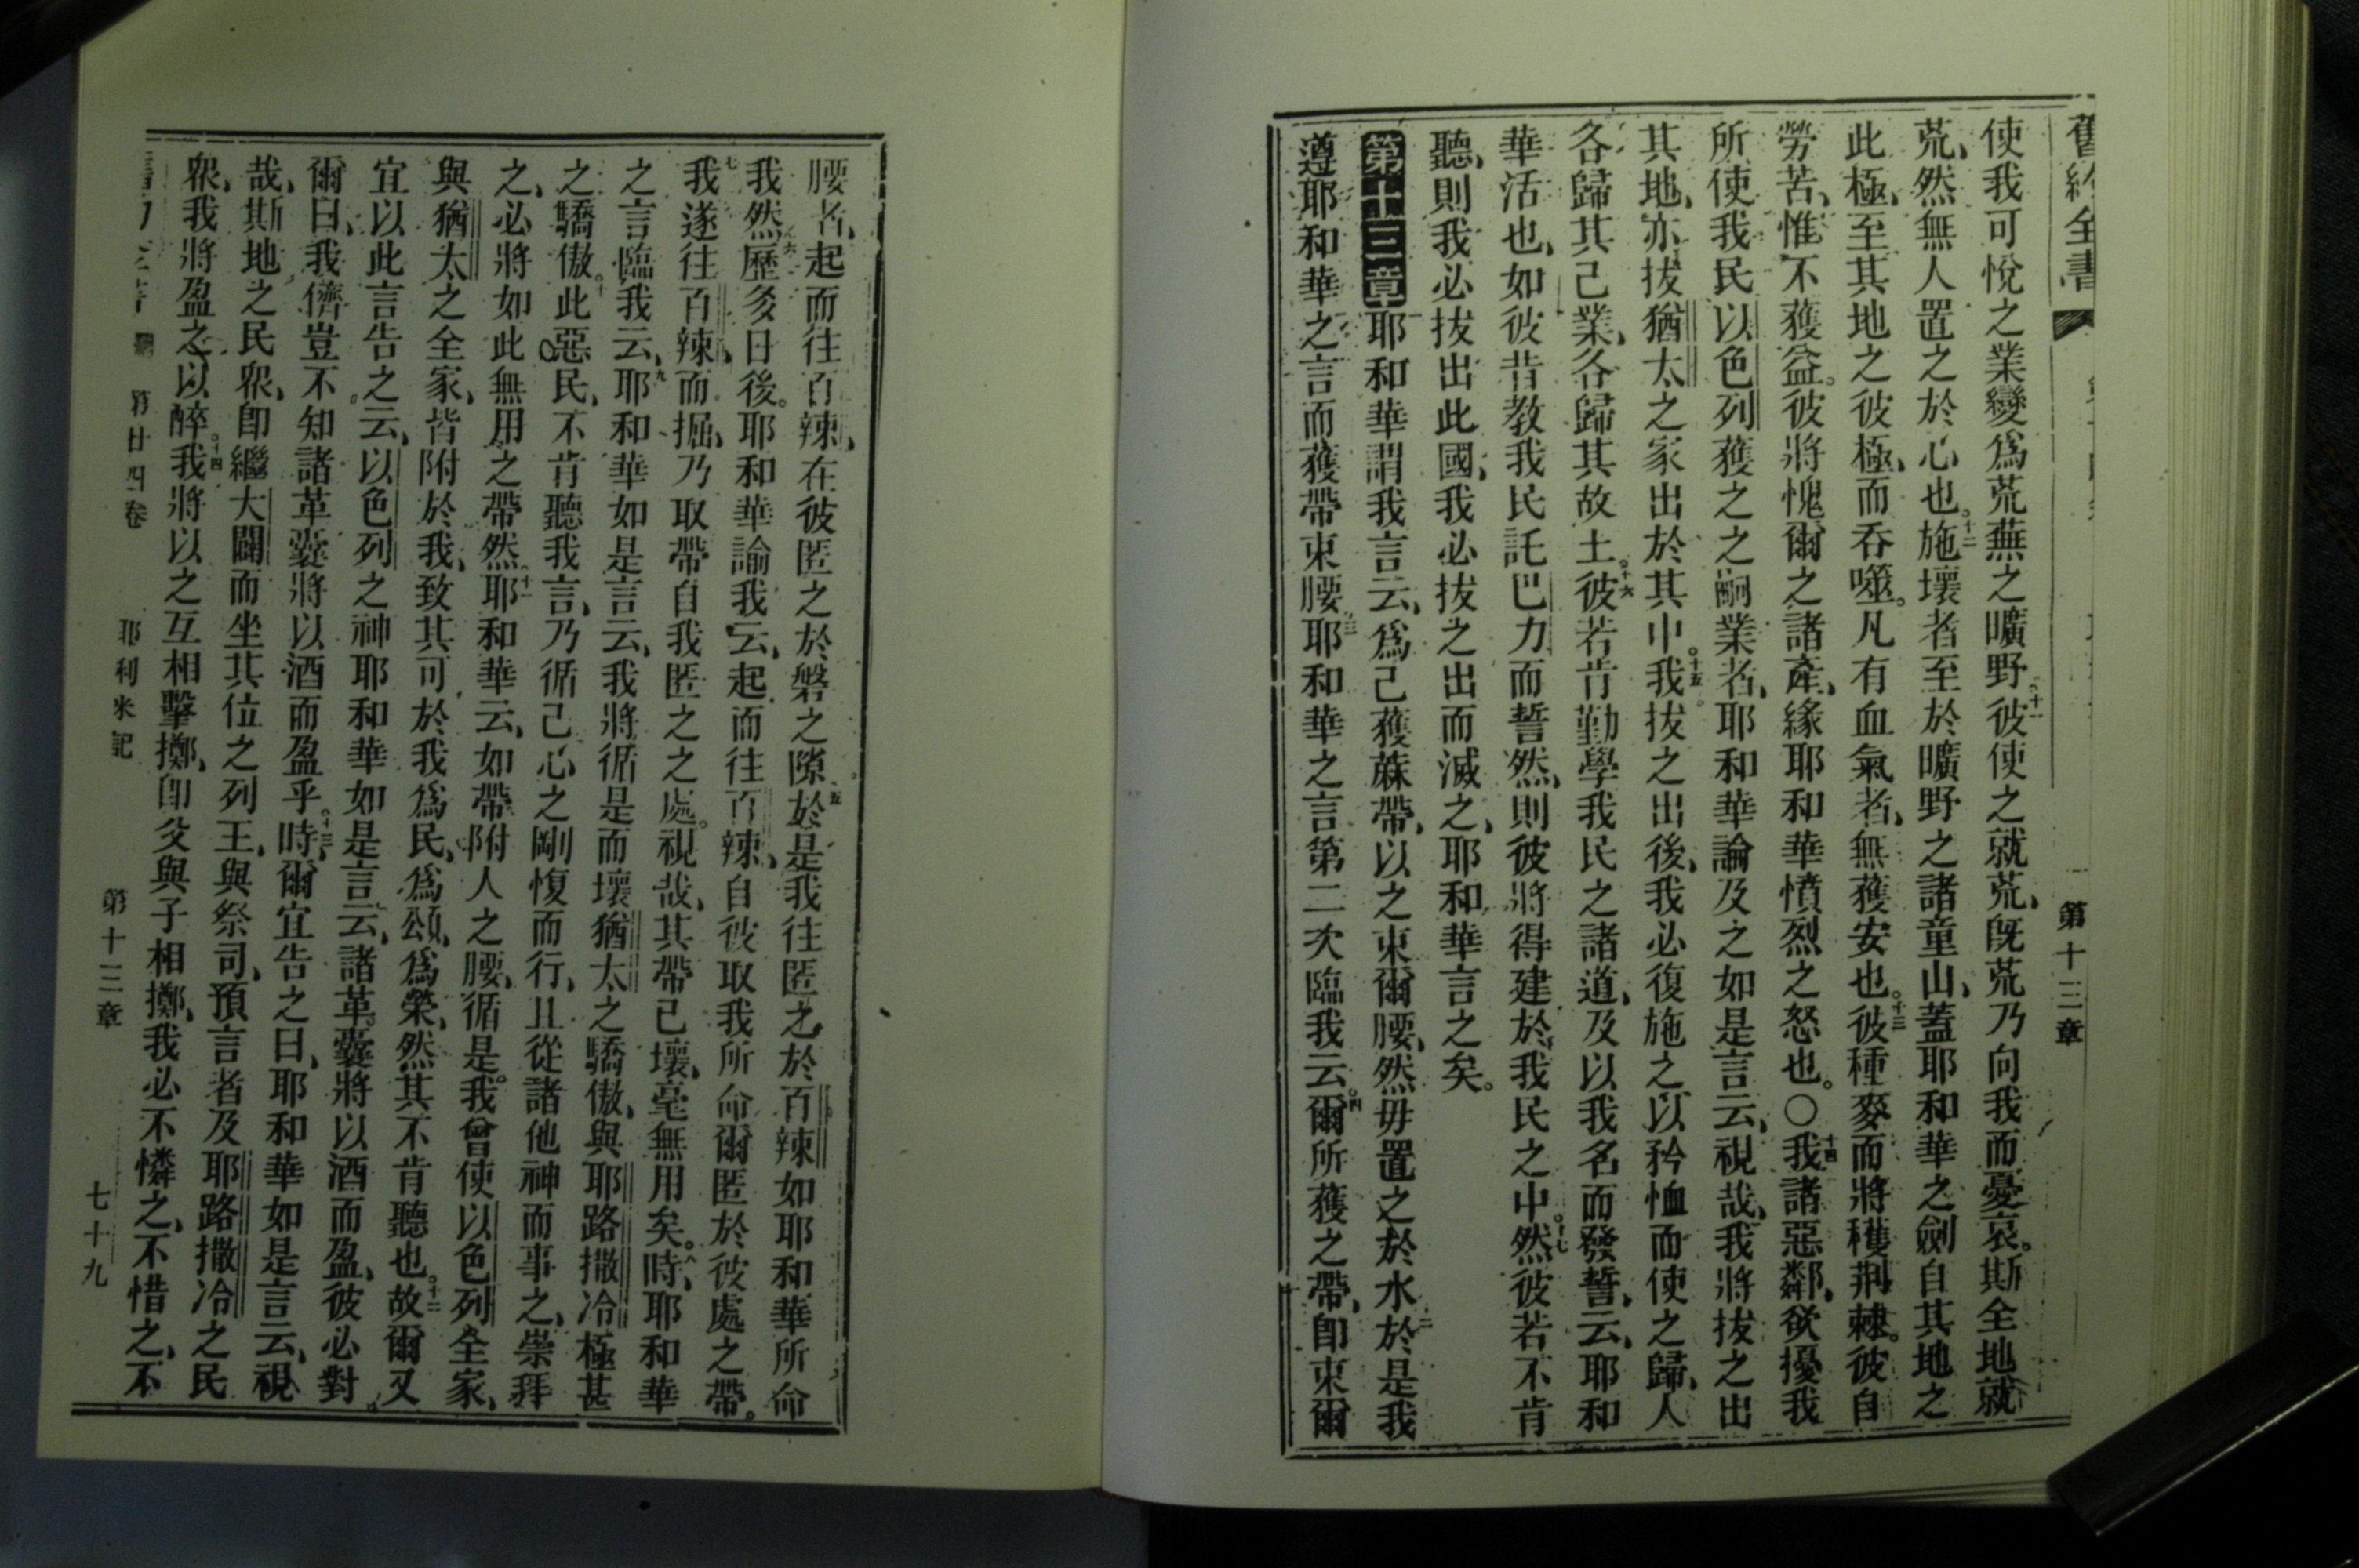 第十三章
使我可悅之業變爲荒蕪之曠野。十一彼使之就荒、既荒乃向我而憂哀。斯全地就
荒、然無人置之於心也。十二施壞者至於曠野之諸童山、蓋耶和華之劍自其地之
此極、至其地之彼極、而吞噬。凡有血氣者、無獲安也。十三彼種麥而將穫荆棘。彼自
勞苦、惟不獲益。彼將愧爾之諸產、緣耶和華憤烈之怒也。〇十四我諸惡鄰、欲擾我
所使我民以色列獲之之嗣業者、耶和華論及之如是言云、視哉、我將拔之出
其地、亦拔猶太之家出於其中。十五我拔之出後、我必復施之以矜恤而使之歸、人
各歸其己業、各歸其故土。十六彼若肯勤學我民之諸道、及以我名而發誓、云、耶和
華活也、如彼昔教我民託巴力而誓然、則彼將得建於我民之中。十七然彼若不肯
聽、則我必拔出此國、我必拔之出而滅之、耶和華言之矣。
第十三章耶和華謂我言云、爲己獲蔴帶、以之束爾腰、然毋置之於水。二於是我
遵耶和華之言而獲帶束腰。三耶和華之言第二次臨我云。四爾所獲之帶、卽束爾
腰者、起而往百辣、在彼匿之於磐之隙。五於是我往匿之、於百辣如耶和華所命
我然。六歷多日後。耶和華諭我、云、起而往百辣、自彼取我所命爾匿於彼處之帶。
七我遂往百辣、而掘、乃取帶自我匿之之處。視哉、其帶已壞、毫無用矣。八時、耶和華
之言臨我云、九耶和華如是言云、我將循是而壞猶太之驕傲、與耶路撒冷極甚
之驕傲。十此惡民、不肯聽我言、乃循己心之剛愎而行、且從諸他神而事之、崇拜
之、必將如此無用之帶然。十一耶和華云、如帶附人之腰、循是。我曾使以色列全家、
與猶太之全家、皆附於我、致其可於我爲民、爲頌、爲榮、然其不肯聽也。十二故爾又
宜以此言告之。云、以色列之神耶和華如是言云、諸革囊將以酒而盈、彼必對
爾曰、我儕豈不知諸革囊將以酒而盈乎。十三時、爾宜告之曰、耶和華如是言云、視
哉、斯地之民衆、卽繼大闢而坐其位之列王、與祭司、預言者及耶路撒冷之民
衆、我將盈之以醉。十四我將以之互相擊擲、卽父與子相擲、我必不憐之、不惜之、不
第廿四卷
耶利米記
第十三章
七十九